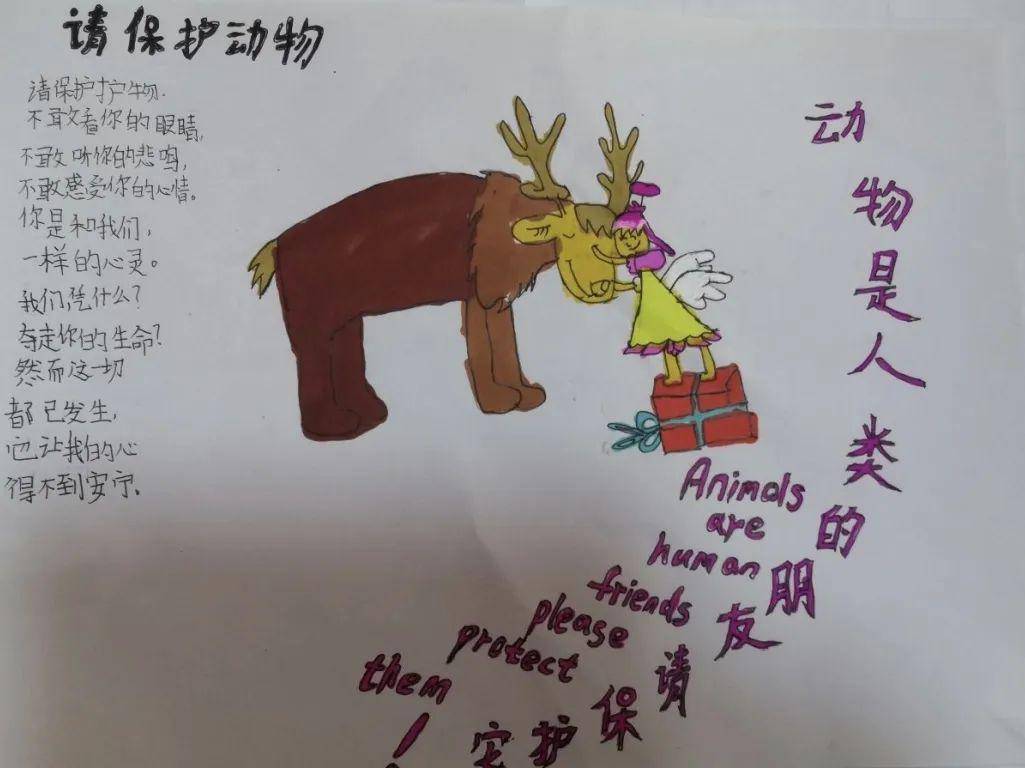 请保护动物
请保护护物.
不敢看你的眼睛,
不敢听你的悲鸣,
不敢感受你的心情。
你是和我们,
一样的心灵。
我们凭什么?
夺走你的生命?
然而这一切
都已发生,
它让我的心
得不到安宁.
动物是人类的朋友请保护它
Animals
are
human
friends
please
protect
them
!